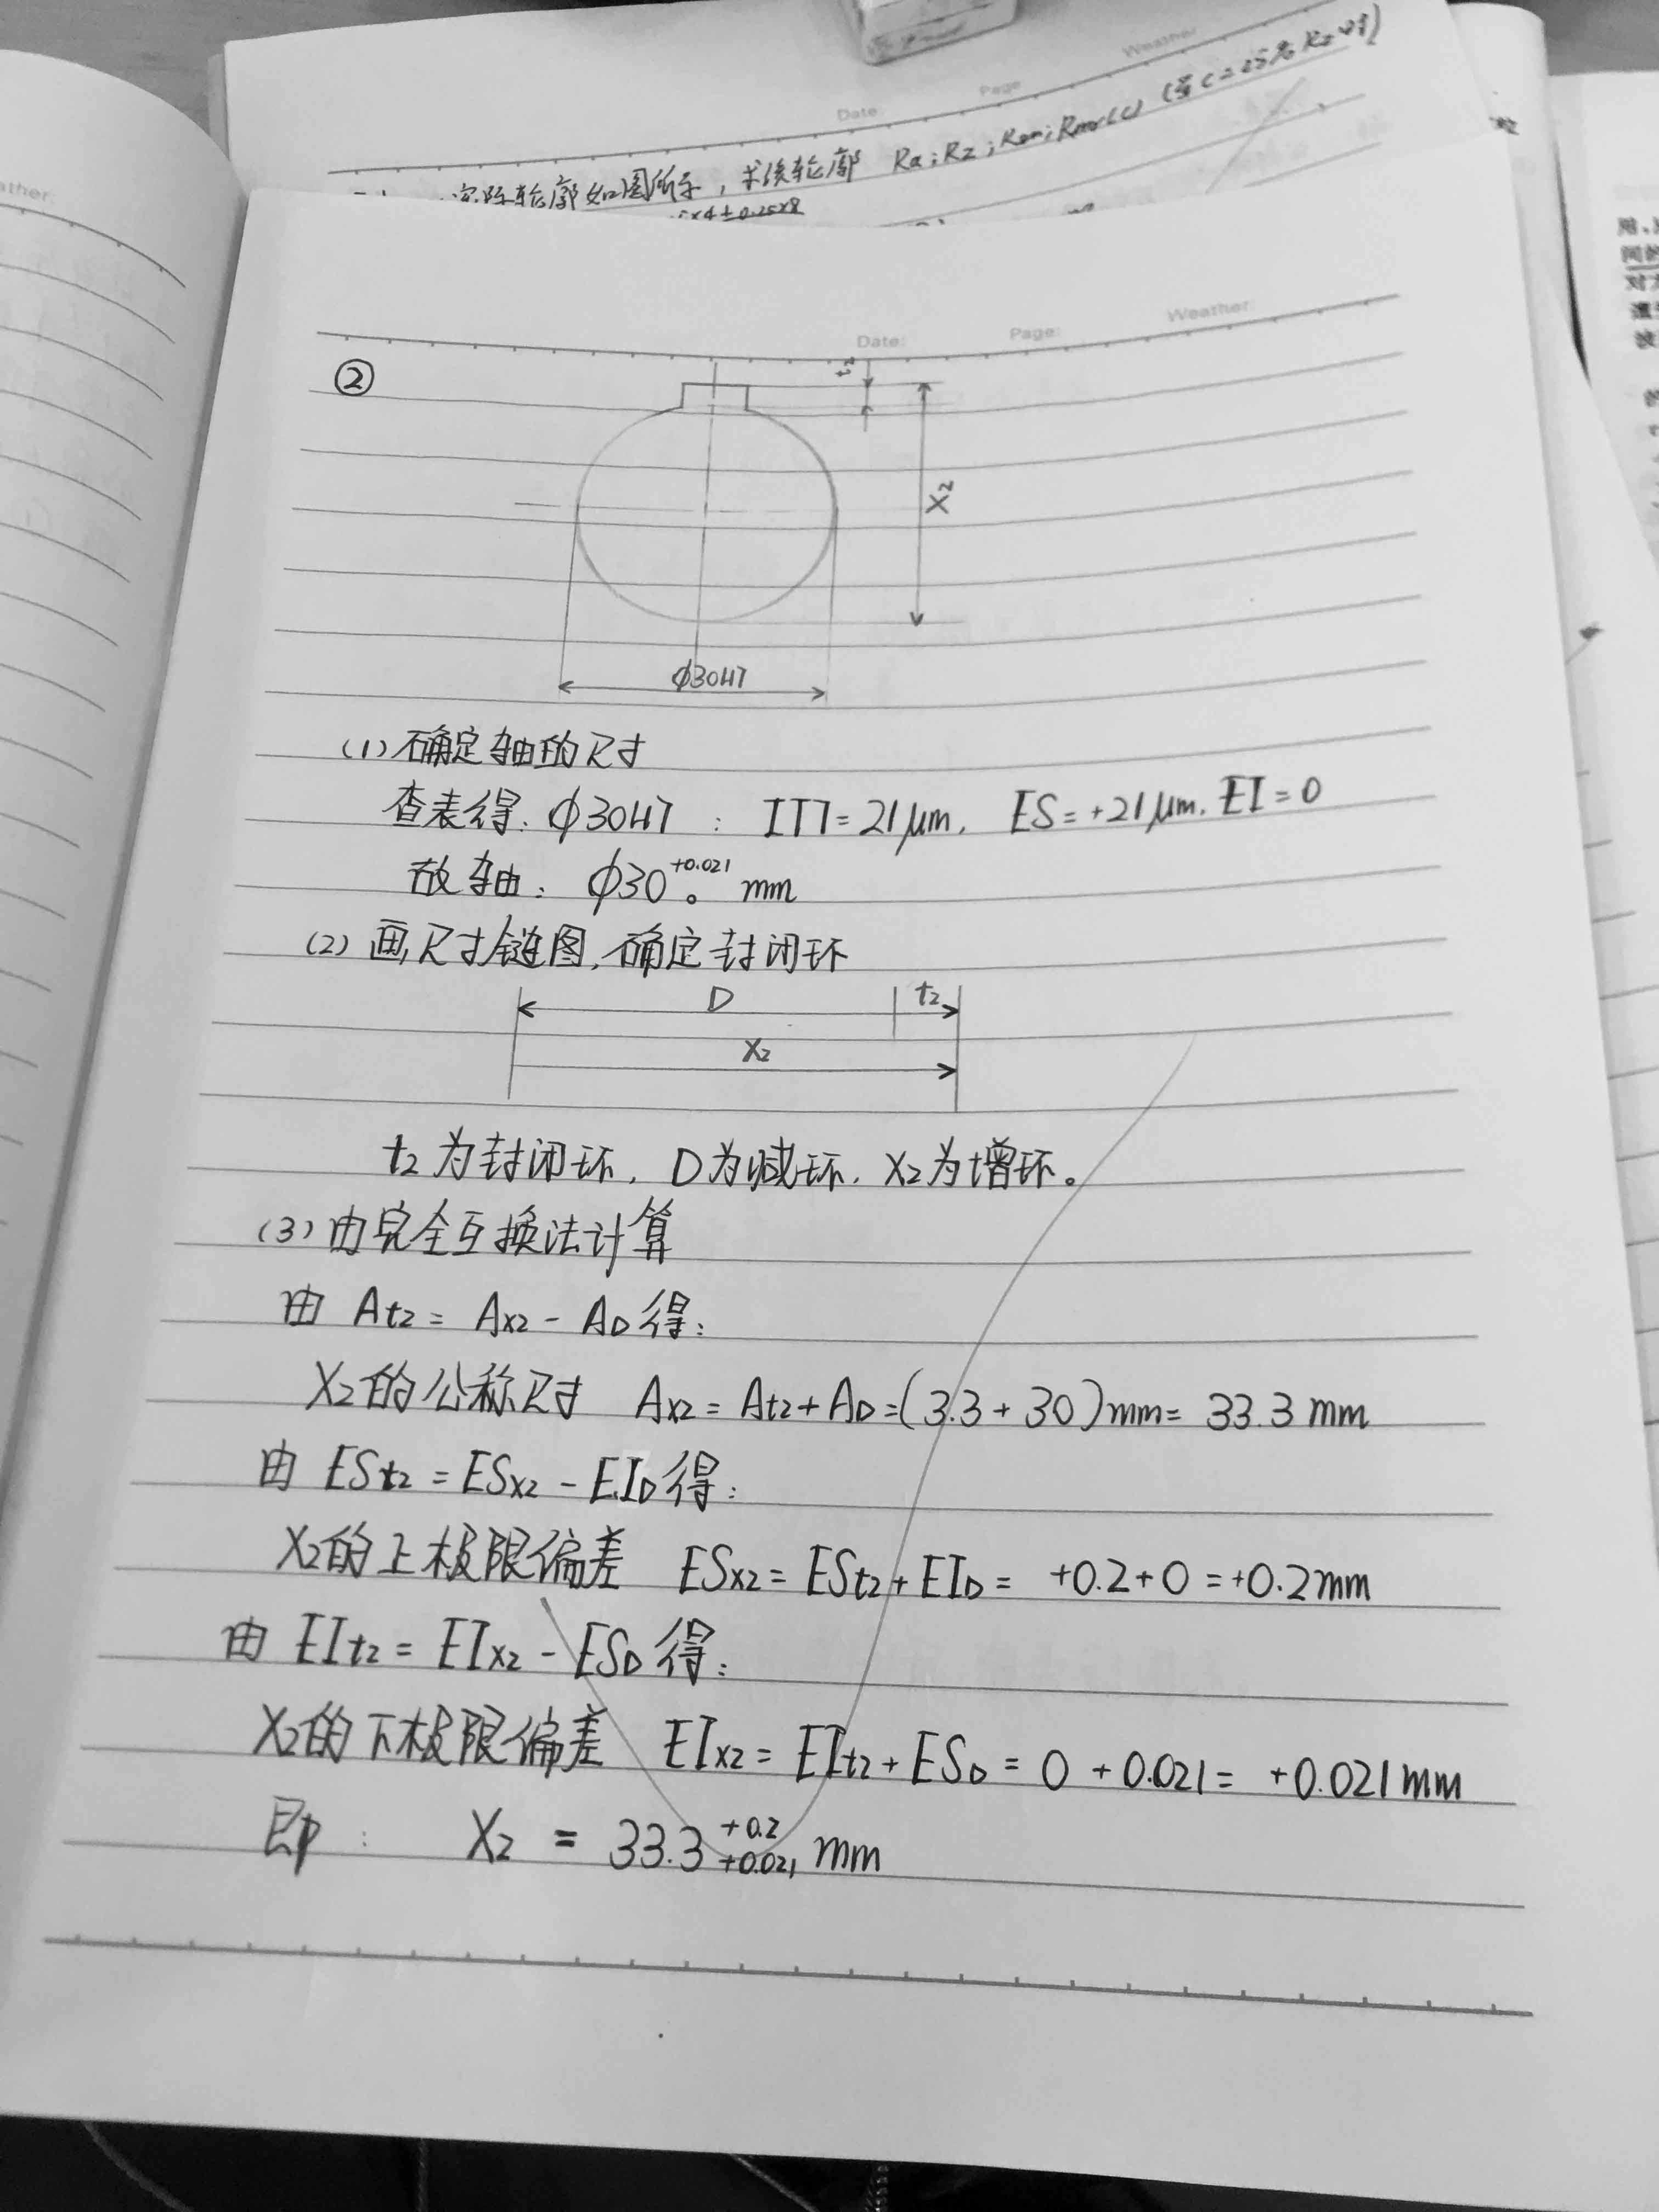 Weather
Page
Date
实际轮廓如图所示，求该轮廓 Ra；Rz；Rsm；Rmr(c) (当 c=25% Rz 时)
×4+0.25×8
Date: Page: Weather:
②
t₂
X₂
ϕ30H7
(1) 确定轴的尺寸
查表得：ϕ30H7 ： IT7=21μm， ES=+21μm. EI=0
故轴： ϕ30 +0.021 0 mm
(2) 画尺寸链图，确定封闭环
D t₂
X₂
t₂为封闭环，D为减环，X₂为增环。
(3) 由完全互换法计算
由 At₂ = Ax₂ - AD 得：
X₂的公称尺寸 Ax₂ = At₂ + AD = (3.3 + 30)mm = 33.3 mm
由 ESt₂ = ESx₂ - EID 得：
X₂的上极限偏差 ESx₂ = ESt₂ + EID = +0.2+0 = +0.2mm
由 EIt₂ = EIx₂ - ESD 得：
X₂的下极限偏差 EIx₂ = EIt₂ + ESD = 0 + 0.021 = +0.021mm
即： X₂ = 33.3 +0.2 +0.021 mm